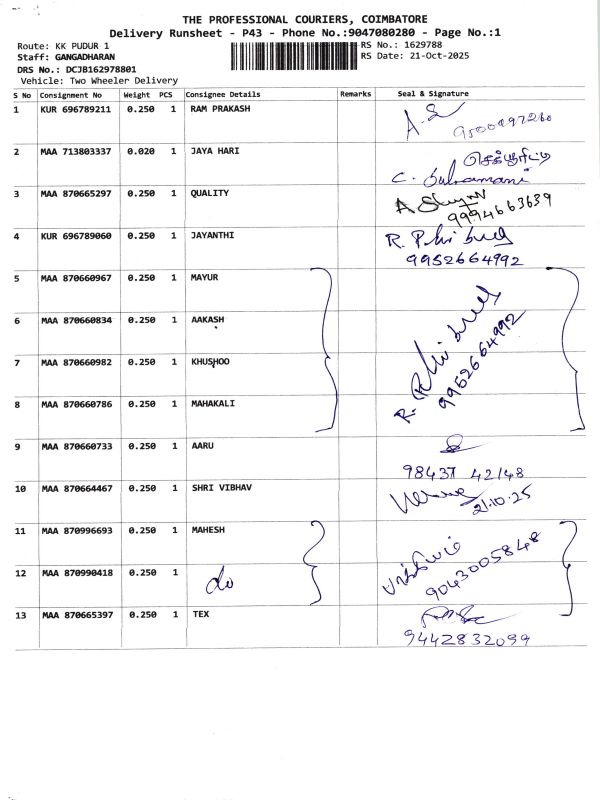 THE PROFESSIONAL COURIERS, COIMBATORE
Delivery Runsheet - P43 - Phone No.:9047080280 - Page No.:1
Route: KK PUDUR 1
RS No.: 1629788
Staff: GANGADHARAN
RS Date: 21-Oct-2025
DRS No.: DCJB162978801
Vehicle: Two Wheeler Delivery
S No Consignment No Weight PCS Consignee Details Remarks Seal & Signature
1 KUR 696789211 0.250 1 RAM PRAKASH
2 MAA 713803337 0.020 1 JAYA HARI
3 MAA 870665297 0.250 1 QUALITY
9994663639
4 KUR 696789060 0.250 1 JAYANTHI
9952664992
5 MAA 870660967 0.250 1 MAYUR
6 MAA 870660834 0.250 1 AAKASH
7 MAA 870660982 0.250 1 KHUSHOO
9952664992
8 MAA 870660786 0.250 1 MAHAKALI
9 MAA 870660733 0.250 1 AARU
98437 42148
10 MAA 870664467 0.250 1 SHRI VIBHAV
21.10.25
11 MAA 870996693 0.250 1 MAHESH
12 MAA 870990418 0.250 1 do
9043005848
13 MAA 870665397 0.250 1 TEX
9442832099